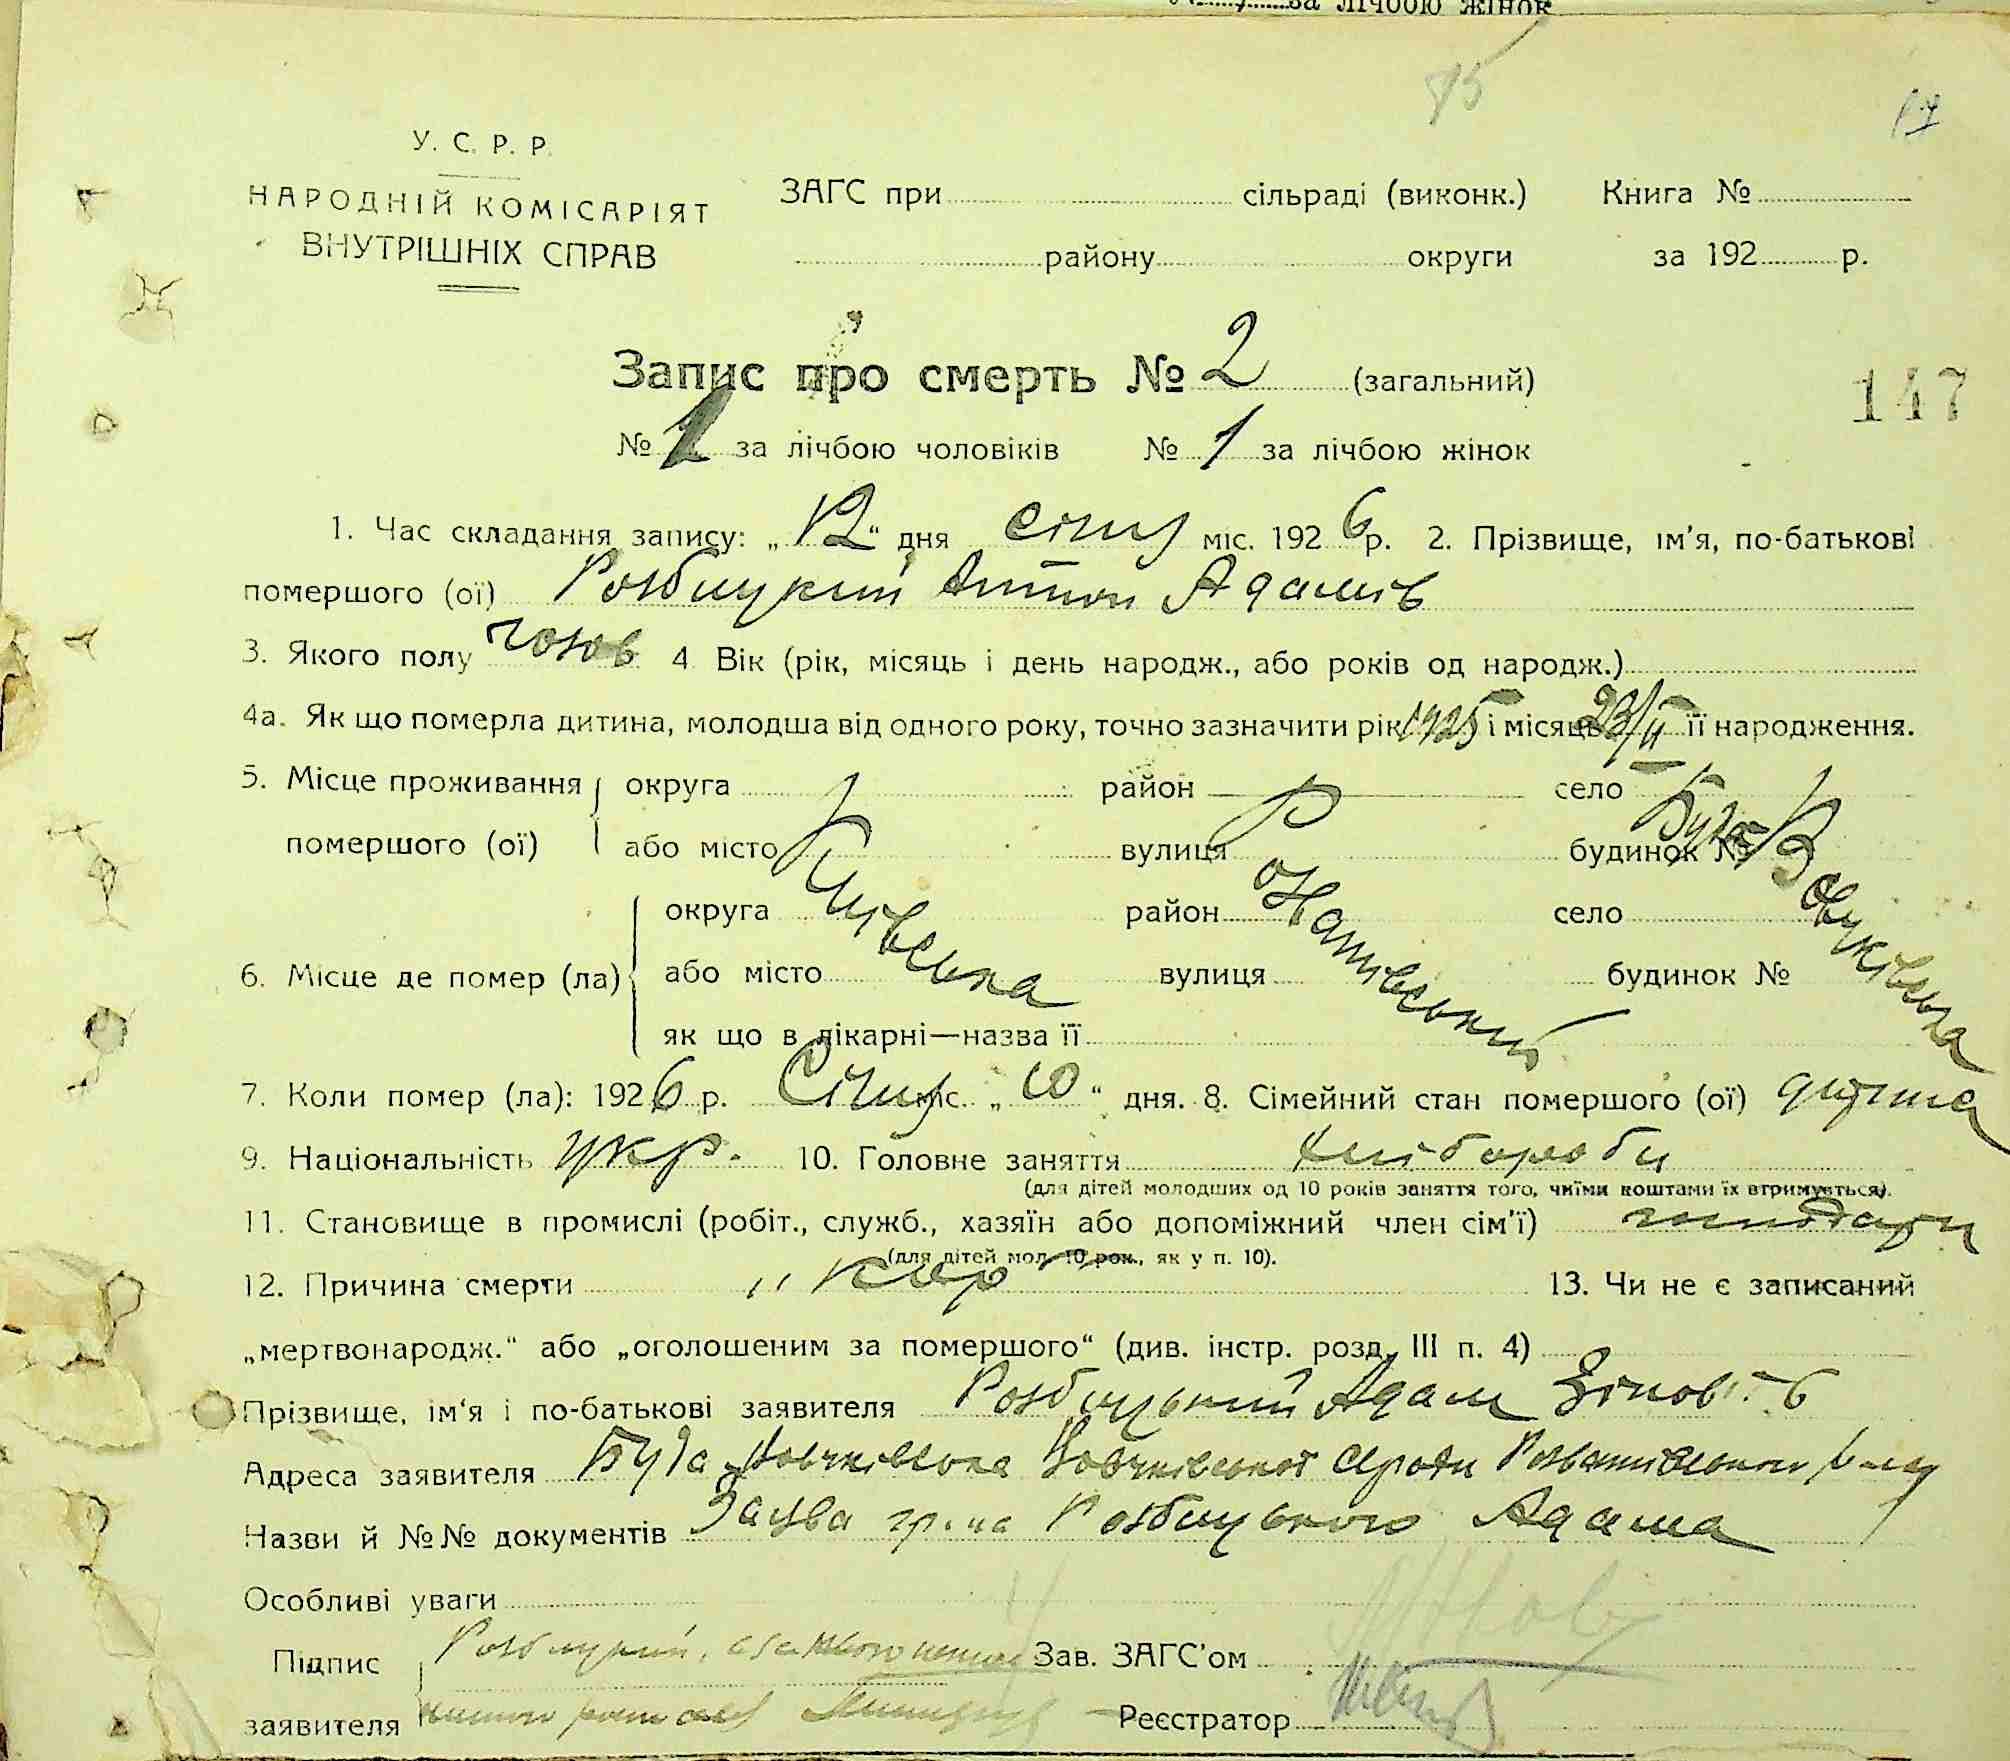 за лічбою жінок
У. С. Р. Р.
НАРОДНІЙ КОМІСАРІЯТ
ВНУТРІШНІХ СПРАВ
ЗАГС при сільраді (виконк.) Книга №
району округи за 192 р.
Запис про смерть № 2 (загальний)
147
№ 1 за лічбою чоловіків № 1 за лічбою жінок
1. Час складання запису: „12“ дня січня міс. 1926 р. 2. Прізвище, ім'я, по-батькові
помершого (ої) Розбицкий Антон Адамів
3. Якого полу чолов 4. Вік (рік, місяць і день народж., або років од народж.)
4а. Як що померла дитина, молодша від одного року, точно зазначити рік 1925 і місяць 23/II її народження.
5. Місце проживання помершого (ої) округа Київська район Розважівський село Буда Вовчківська
або місто вулиця будинок №
6. Місце де помер (ла) округа район село
або місто вулиця будинок №
як що в лікарні—назва її
7. Коли помер (ла): 1926 р. Січня міс. „10“ дня. 8. Сімейний стан помершого (ої) дитина
9. Національність укр. 10. Головне заняття хлібороби
(для дітей молодших од 10 років заняття того, чиїми коштами їх втримується).
11. Становище в промислі (робіт., служб., хазяїн або допоміжний член сім'ї) господари
(для дітей мол. 10 рок., як у п. 10).
12. Причина смерти „кор“ 13. Чи не є записаний
„мертвонародж.“ або „оголошеним за помершого“ (див. інстр. розд. III п. 4)
Прізвище, ім'я і по-батькові заявителя Розбицький Адам Зіновів
Адреса заявителя Буда Вовчківська Вовчківської с/ради Розважівського р-ну
Назви й №№ документів Заява гр-на Розбицького Адама
Особливі уваги
Підпис заявителя Розбицкий, Зав. ЗАГС'ом
Реєстратор